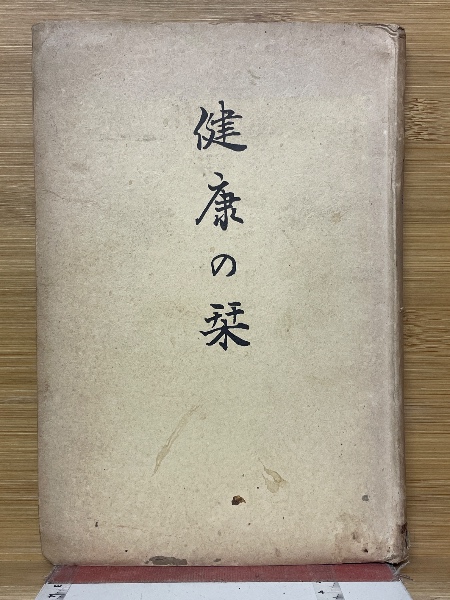 健康の栞